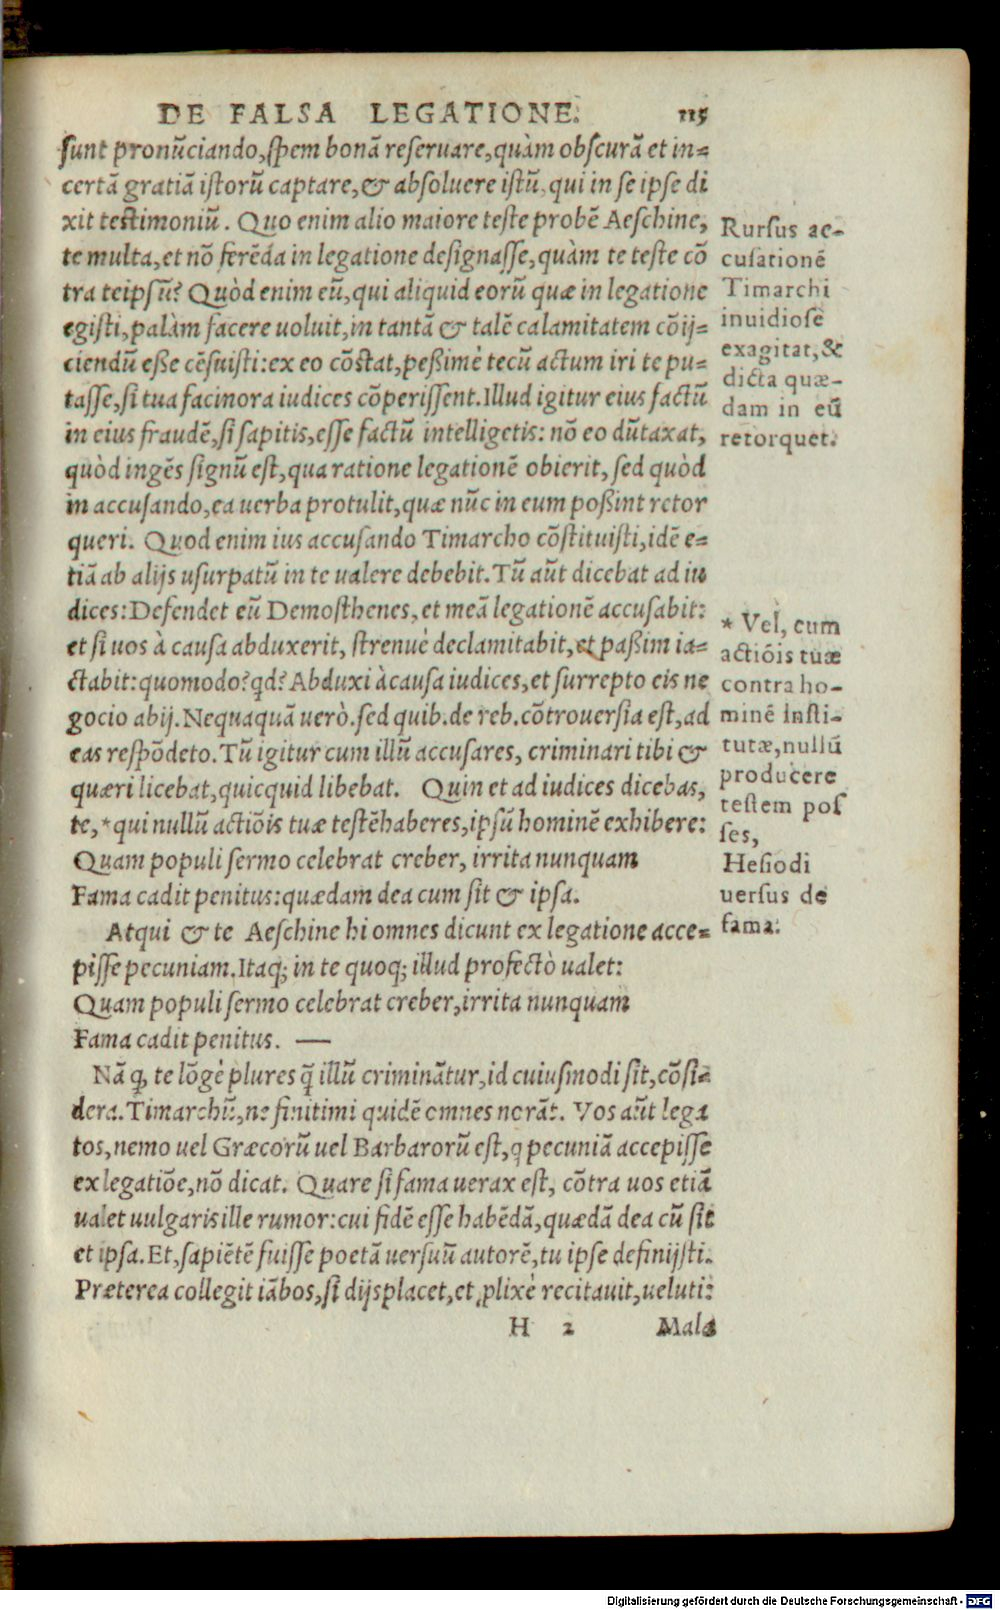 DE FALSA LEGATIONE. 115
sunt pronūciando, spem bonā reseruare, quàm obscurā et in=
certā gratiā istorū captare, & absoluere istū, qui in se ipse di
xit testimoniū. Quo enim alio maiore teste probē Aeschine,
te multa, et nō ferēda in legatione designasse, quàm te teste cō
tra teipsū? Quòd enim eū, qui aliquid eorū quæ in legatione
egisti, palàm facere uoluit, in tantā & talē calamitatem cōij=
ciendū eße cēsuisti: ex eo cōstat, peßimè tecū actum iri te pu=
tasse, si tua facinora iudices cōperissent. Illud igitur eius factū
in eius fraudē, si sapitis, esse factū intelligetis: nō eo dūtaxat,
quòd ingēs signū est, qua ratione legationē obierit, sed quòd
in accusando, ea uerba protulit, quæ nūc in eum poßint retor
queri. Quod enim ius accusando Timarcho cōstituisti, idē e=
tiā ab alijs usurpatū in te ualere debebit. Tū aūt dicebat ad iu
dices: Defendet eū Demosthenes, et meā legationē accusabit:
et si uos à causa abduxerit, strenuè declamitabit, et paßim ia=
ctabit: quomodo? qd? Abduxi à causa iudices, et surrepto eis ne
gocio abij. Nequaquā uerò. sed quib. de reb. cōtrouersia est, ad
eas respōdeto. Tū igitur cum illū accusares, criminari tibi &
quæri licebat, quicquid libebat. Quin et ad iudices dicebas,
te, * qui nullū actiōis tuæ testē haberes, ipsū hominē exhibere:
Quam populi sermo celebrat creber, irrita nunquam
Fama cadit penitus: quædam dea cum sit & ipsa.
Atqui & te Aeschine hi omnes dicunt ex legatione acce=
pisse pecuniam. Itaq; in te quoq; illud profectò ualet:
Quam populi sermo celebrat creber, irrita nunquam
Fama cadit penitus. —
Nā q̨ te lōgè plures q̄ illū criminātur, id cuiusmodi sit, cōsi=
dera. Timarchū, ne finitimi quidē omnes norāt. Vos aūt lega
tos, nemo uel Græcorū uel Barbarorū est, q̨ pecuniā accepisse
ex legatiōe, nō dicat. Quare si fama uerax est, cōtra uos etiā
ualet uulgaris ille rumor: cui fidē esse habēdā, quædā dea cū sit
et ipsa. Et, sapiētē fuisse poetā uersuū autorē, tu ipse definijsti.
Præterea collegit iābos, si dijs placet, et ꝓlixè recitauit, ueluti:
H 2 Mala
Rursus ac-
cusationē
Timarchi
inuidiosè
exagitat, &
dicta quæ-
dam in eū
retorquet.
* Vel, cum
actiōis tuæ
contra ho-
minē insti-
tutæ, nullū
producere
testem pos
ses,
Hesiodi
uersus de
fama.
Digitalisierung gefördert durch die Deutsche Forschungsgemeinschaft - DFG